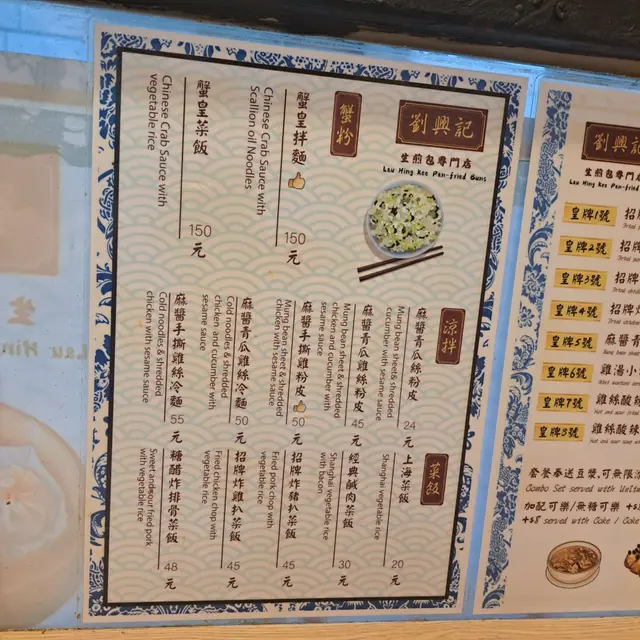 劉興記
生煎包專門店
Lau Hing Kee Pan-fried Buns
蟹粉
蟹皇拌麵
150元
Chinese Crab Sauce with
Scallion oil Noodles
蟹皇菜飯
150元
Chinese Crab Sauce with
vegetable rice
涼拌
麻醬青瓜絲粉皮
24元
Mung bean sheet& shredded
cucumber with sesame sauce
麻醬青瓜雞絲粉皮
45元
Mung bean sheet & shredded
chicken and cucumber with
sesame sauce
麻醬手撕雞粉皮
50元
Mung bean sheet & shredded
chicken with sesame sauce
麻醬青瓜雞絲冷麵
50元
Cold noodles & shredded
chicken and cucumber with
sesame sauce
麻醬手撕雞絲冷麵
55元
Cold noodles & shredded
chicken with sesame sauce
菜飯
上海菜飯
20元
Shanghai vegetable rice
經典鹹肉菜飯
30元
Shanghai vegetable rice
with bacon
招牌炸豬扒菜飯
45元
Fried pork chop with
vegetable rice
招牌炸雞扒菜飯
45元
Fried chicken chop with
vegetable rice
糖醋炸排骨菜飯
48元
Sweet and sour fried pork
with vegetable rice
劉興記
生煎包專門店
Lau Hing Kee Pan-fried Buns
皇牌1號 招牌
皇牌2號 招牌
皇牌3號 招牌
皇牌4號 招牌炸
皇牌5號 麻醬青
皇牌6號 雞湯小
皇牌7號 雞絲酸辣
皇牌8號 雞絲酸辣
套餐奉送豆漿,可無限
Combo Set served with
加配可樂/無糖可樂
+$8 served with Coke / Coke